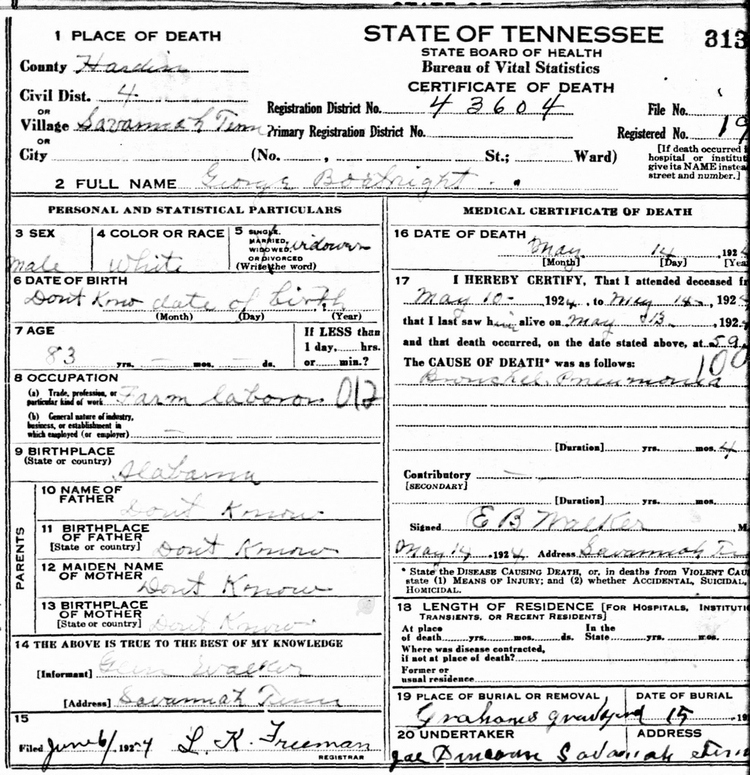 STATE OF TENNESSEE
313
STATE BOARD OF HEALTH
Bureau of Vital Statistics
CERTIFICATE OF DEATH
1 PLACE OF DEATH
County Hardin
Civil Dist. 4
OR
Village Savannah Tenn
OR
City (No. , St.; Ward)
Registration District No. 43604
File No.
Primary Registration District No.
Registered No. 19
[If death occurred
hospital or institut
give its NAME instea
street and number.]
2 FULL NAME George Boatright
PERSONAL AND STATISTICAL PARTICULARS
3 SEX
male
4 COLOR OR RACE
White
5 SINGLE, MARRIED, WIDOWED, OR DIVORCED
(Write the word)
widower
6 DATE OF BIRTH
Dont Know date of birth
(Month) (Day) (Year)
7 AGE
83 yrs. — mos. — ds.
If LESS than
1 day, hrs.
or min.?
8 OCCUPATION
(a) Trade, profession, or
particular kind of work Farm laboror 012
(b) General nature of industry,
business, or establishment in
which employed (or employer) —
9 BIRTHPLACE
(State or country)
Alabama
PARENTS
10 NAME OF
FATHER
Dont Know
11 BIRTHPLACE
OF FATHER
[State or country] Dont Know
12 MAIDEN NAME
OF MOTHER
Dont Know
13 BIRTHPLACE
OF MOTHER
[State or country] Dont Know
14 THE ABOVE IS TRUE TO THE BEST OF MY KNOWLEDGE
[Informant] Glen Walker
[Address] Savannah Tenn
15
Filed June 6/ 1924 L. K. Freeman
REGISTRAR
MEDICAL CERTIFICATE OF DEATH
16 DATE OF DEATH
May 14 , 192
[Month] [Day] [Yea
17 I HEREBY CERTIFY, That I attended deceased f
May 10- 1924, to May 14- 192
that I last saw him alive on May 13- , 192
and that death occurred, on the date stated above, at 5 9
The CAUSE OF DEATH* was as follows: 100
Bronchel Pneumonia
[Duration] yrs. mos. 4
Contributory —
[SECONDARY]
[Duration] yrs. mos.
Signed E B Walker M
May 14, 1924 Address Savannah Ten
* State the DISEASE CAUSING DEATH, or, in deaths from VIOLENT CAU
state (1) MEANS OF INJURY; and (2) whether ACCIDENTAL, SUICIDAL,
HOMICIDAL.
18 LENGTH OF RESIDENCE [FOR HOSPITALS, INSTITUTI
TRANSIENTS, OR RECENT RESIDENTS]
At place
of death yrs. mos. ds.
In the
State yrs. mos.
Where was disease contracted,
if not at place of death?
Former or
usual residence
19 PLACE OF BURIAL OR REMOVAL
Grahams graveyard
DATE OF BURIAL
15 , 19
20 UNDERTAKER
ADDRESS
Savanah Tenn